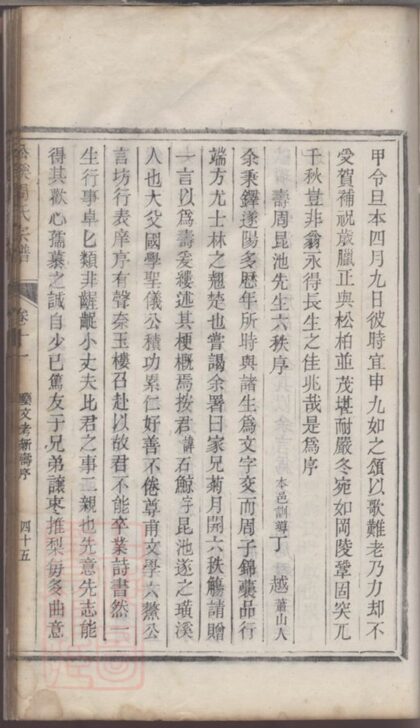 甲令旦本四月九日彼時宜申九如之頌以歌難老乃力却不
受賀補祝葭臘正與松柏並茂堪耐嚴冬宛如岡陵鞏固突兀
千秋豈非翁永得長生之佳兆哉是爲序
壽周昆池先生六秩序 本邑訓導丁 越 蕭山人
余秉鐸遂陽多歷年所時與諸生爲文字交而周子錦襄品行
端方尤士林之翹楚也嘗謁余署曰家兄菊月開六秩觴請贈
一言以爲壽爰縷述其梗概焉按君諱石鯨字昆池遂之璜溪
人也大父國學聖儀公積功累仁好善不倦尊甫文學六鰲公
言坊行表庠序有聲奈玉樓召赴以故君不能卒業詩書然一
生行事卓匕類非齷齪小丈夫比君之事二親也先意先志能
得其歡心孺慕之誠自少已篤友于兄弟讓枣推梨毎多曲意
周氏宗譜
卷十一
藝文考新壽序
四十五